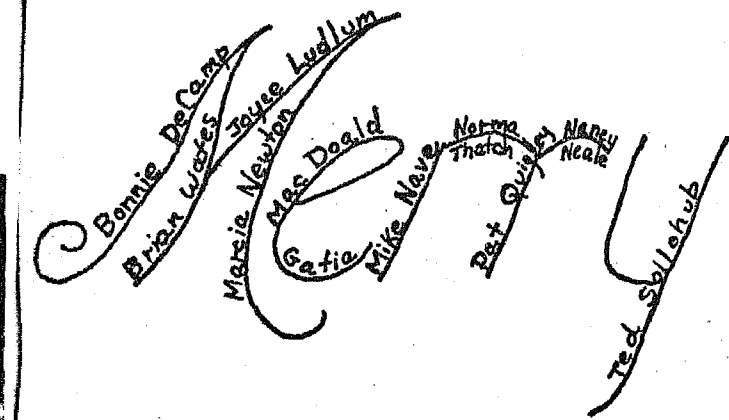 Merry
Bonnie DeCamp
Brian Wates
Joyce Ludlum
Marcia Newton
Mac Doald
Gatia
Mike Nave
Norma
Thatch
Pat Quigley
Nancy
Neale
Ted Sollohub